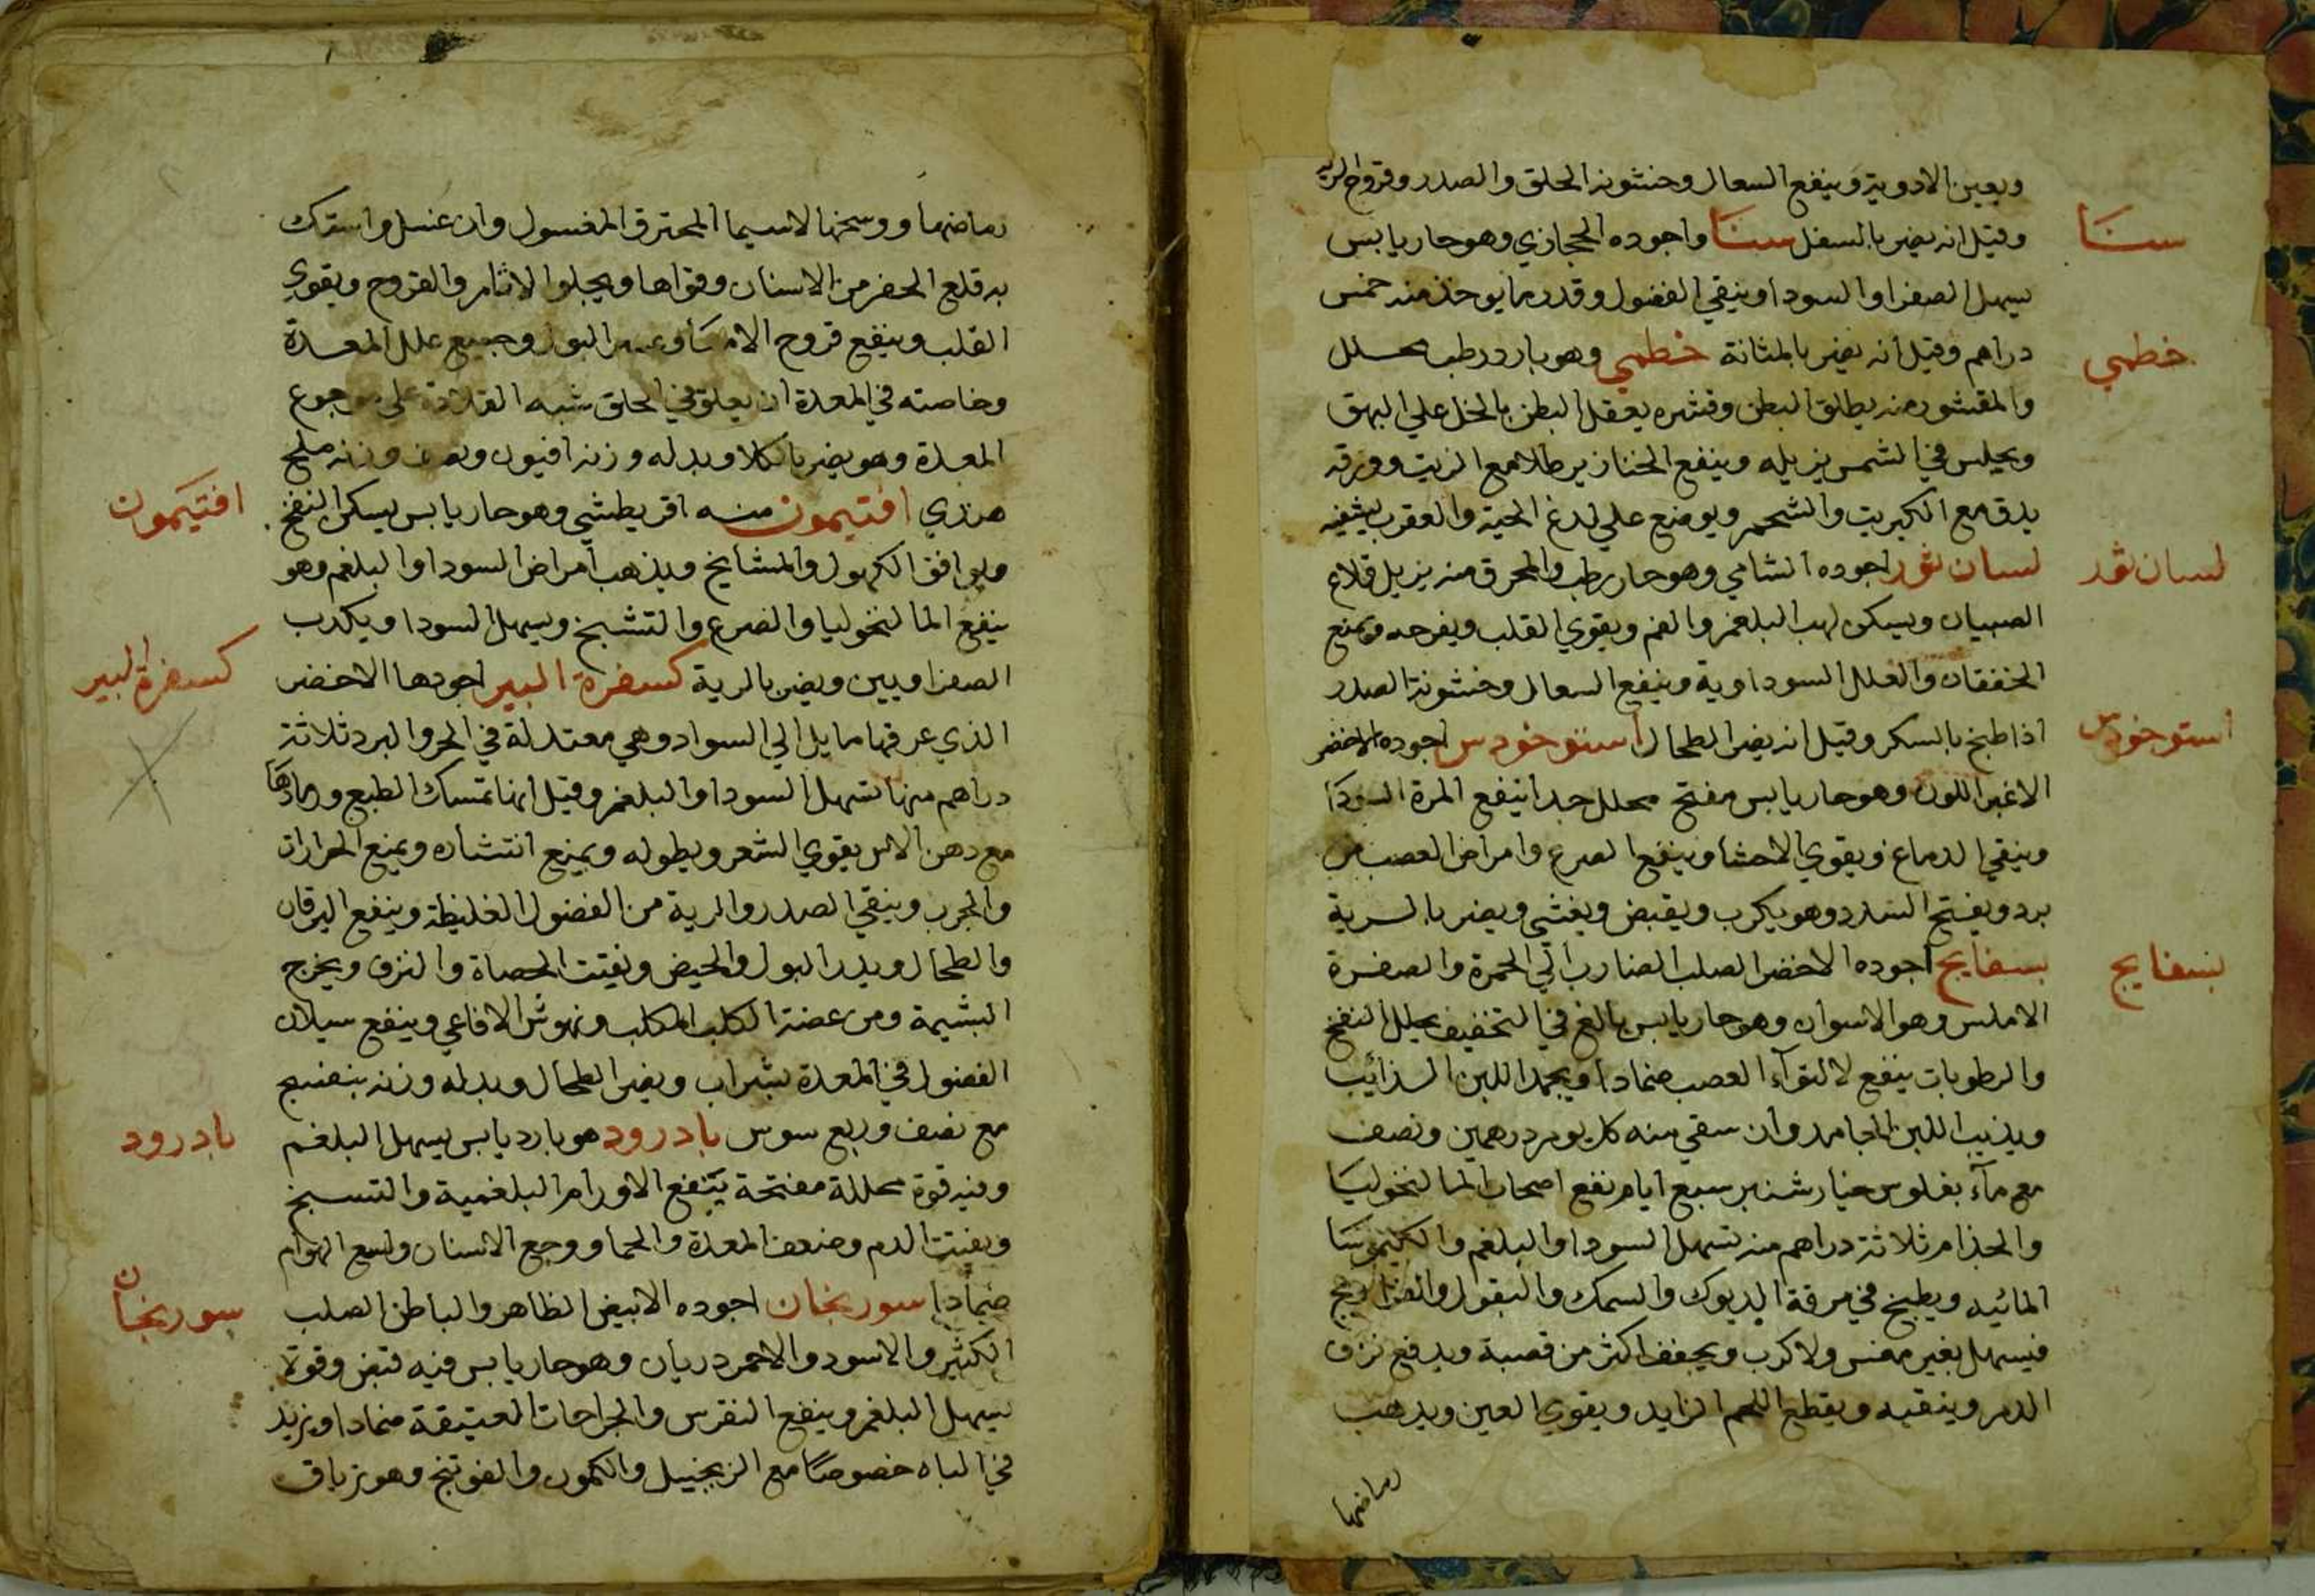 ويعين الادوية وينفع السعال وخشونة الحلق والصدر وقروح الريه
سنَا
وقيل انه يضر بالسفل سنَا واجوده الحجازي وهو حار يابس
يسهل الصفرا والسودا وينقي الفضول وقدر ما يوخذ منه خمس
خطمي
دراهم وقيل انه يضر بالمثانة خطمي وهو بارد رطب محلل
والمقشور منه يطلق البطن وقشره يعقل البطن بالخل علي البهق
ويجلس في الشمس يزيله وينفع الخنازير طلا مع الزيت وورقه
يدق مع الكبريت والشحم ويوضع علي لدغ الحية والعقرب يشفيه
لسان ثور
لسان ثور اجوده الشامي وهو حار رطب والمحرق منه يزيل قلاع
الصبيان ويسكن لهب البلغم والفم ويقوي القلب ويفرحه ويمنع
الخفقان والعلل السوداوية وينفع السعال وخشونة الصدر
اسنوخودس
اذا طبخ بالسكر وقيل انه يضر الطحال اسنوخودس اجوده الاخضر
الاغبر اللون وهو حار يابس مفتح محلل جدا ينفع المرة السودَا
وينقي الدماغ ويقوي الاحشا وينفع الصرع وامراض العصب من
برد ويفتح السدد وهو يكرب ويقبض ويغشي ويضر بالرية
بسفايج
بسفايج اجوده الاخضر الصلب الضارب الي الحمرة والصفرة
الاملس وهو الاسوان وهو حار يابس بالغ في التخفيف يحلل النفخ
والرطوبات ينفع لالتوآء العصب ضمادا ويجمد اللبن الذائب
ويذيب اللبن الجامد وان سقي منه كل يوم درهمين ونصف
مع مآء بفلوس خيار شنبر سبع ايام نفع اصحاب المالنخوليَا
والجذام ثلاثة دراهم منه تسهل السودا والبلغم والكيموسَا
المائيه ويطبخ في مرقة الديوك والسمك والبقول والفراريج
فيسهل بغير مغس ولا كرب ويجفف اكثر من قصبة ويدفع نزف
الدم وينقيه ويقطع اللحم الزايد ويقوي العين ويذهب
رماضها
رماضها ووسخها لاسيما المحترق المغسول وان غسل واستك
به قلع الحفر من الاسنان وقواها ويجلوا الاثار والقروح ويقوي
القلب وينفع قروح الامعَا وعسر البول وجميع علل المعدة
وخاصته في المعدة ان يعلق في الحلق شبه القلادة علي موجوع
المعدة وهو يضر بالكلا وبدله وزنه افيون ونصف وزنه ملح
افتيمون
هندي افتيمون منه اقريطشي وهو حار يابس يسكن النفخ
ويوافق الكهول والمشايخ ويذهب امراض السودا والبلغم وهو
ينفع المالنخوليا والصرع والتشبخ ويسهل السودا ويكرب
كسفرة البير
الصفراويين ويضر بالرية كسفرة البير اجودها الاخضر
الذي عرقها مايل الي السواد وهي معتدلة في الحر والبرد ثلاثة
دراهم منها تسهل السودا والبلغم وقيل انها تمسك الطبع ورمادهَا
مع دهن الاس يقوي الشعر ويطوله ويمنع انتشاره ويمنع الحرارات
والجرب وينقي الصدر والرية من الفضول الغليظة وينفع اليرقان
والطحال ويدر البول والحيض ويفتت الحصاة والنزف ويخرج
البشيمة ومن عضة الكلب المكلب ونهوش الافاعي وينفع سيلان
الفضول في المعدة بشراب ويضر الطحال وبدله وزنه بنفسج
بادرود
مع نصف وربع سوس بادرود هو بارد يابس يسهل البلغم
وفيه قوة محللة مفتحة ينفع الاورام البلغمية والتسبخ
ويفتت الدم وضعف المعدة والحما ووجع الاسنان ولسع الهوام
سوريخان
ضمادا سوريخان اجوده الابيض الظاهر والباطن الصلب
الكثير والاسود والاحمر درياں وهو حار يابس فيه قبض وقوة
يسهل البلغم وينفع النقرس والجراحات العتيقة ضمادا ويزيد
في الباه خصوصًا مع الزنجبيل والكمون والفوتنج وهو ترياق